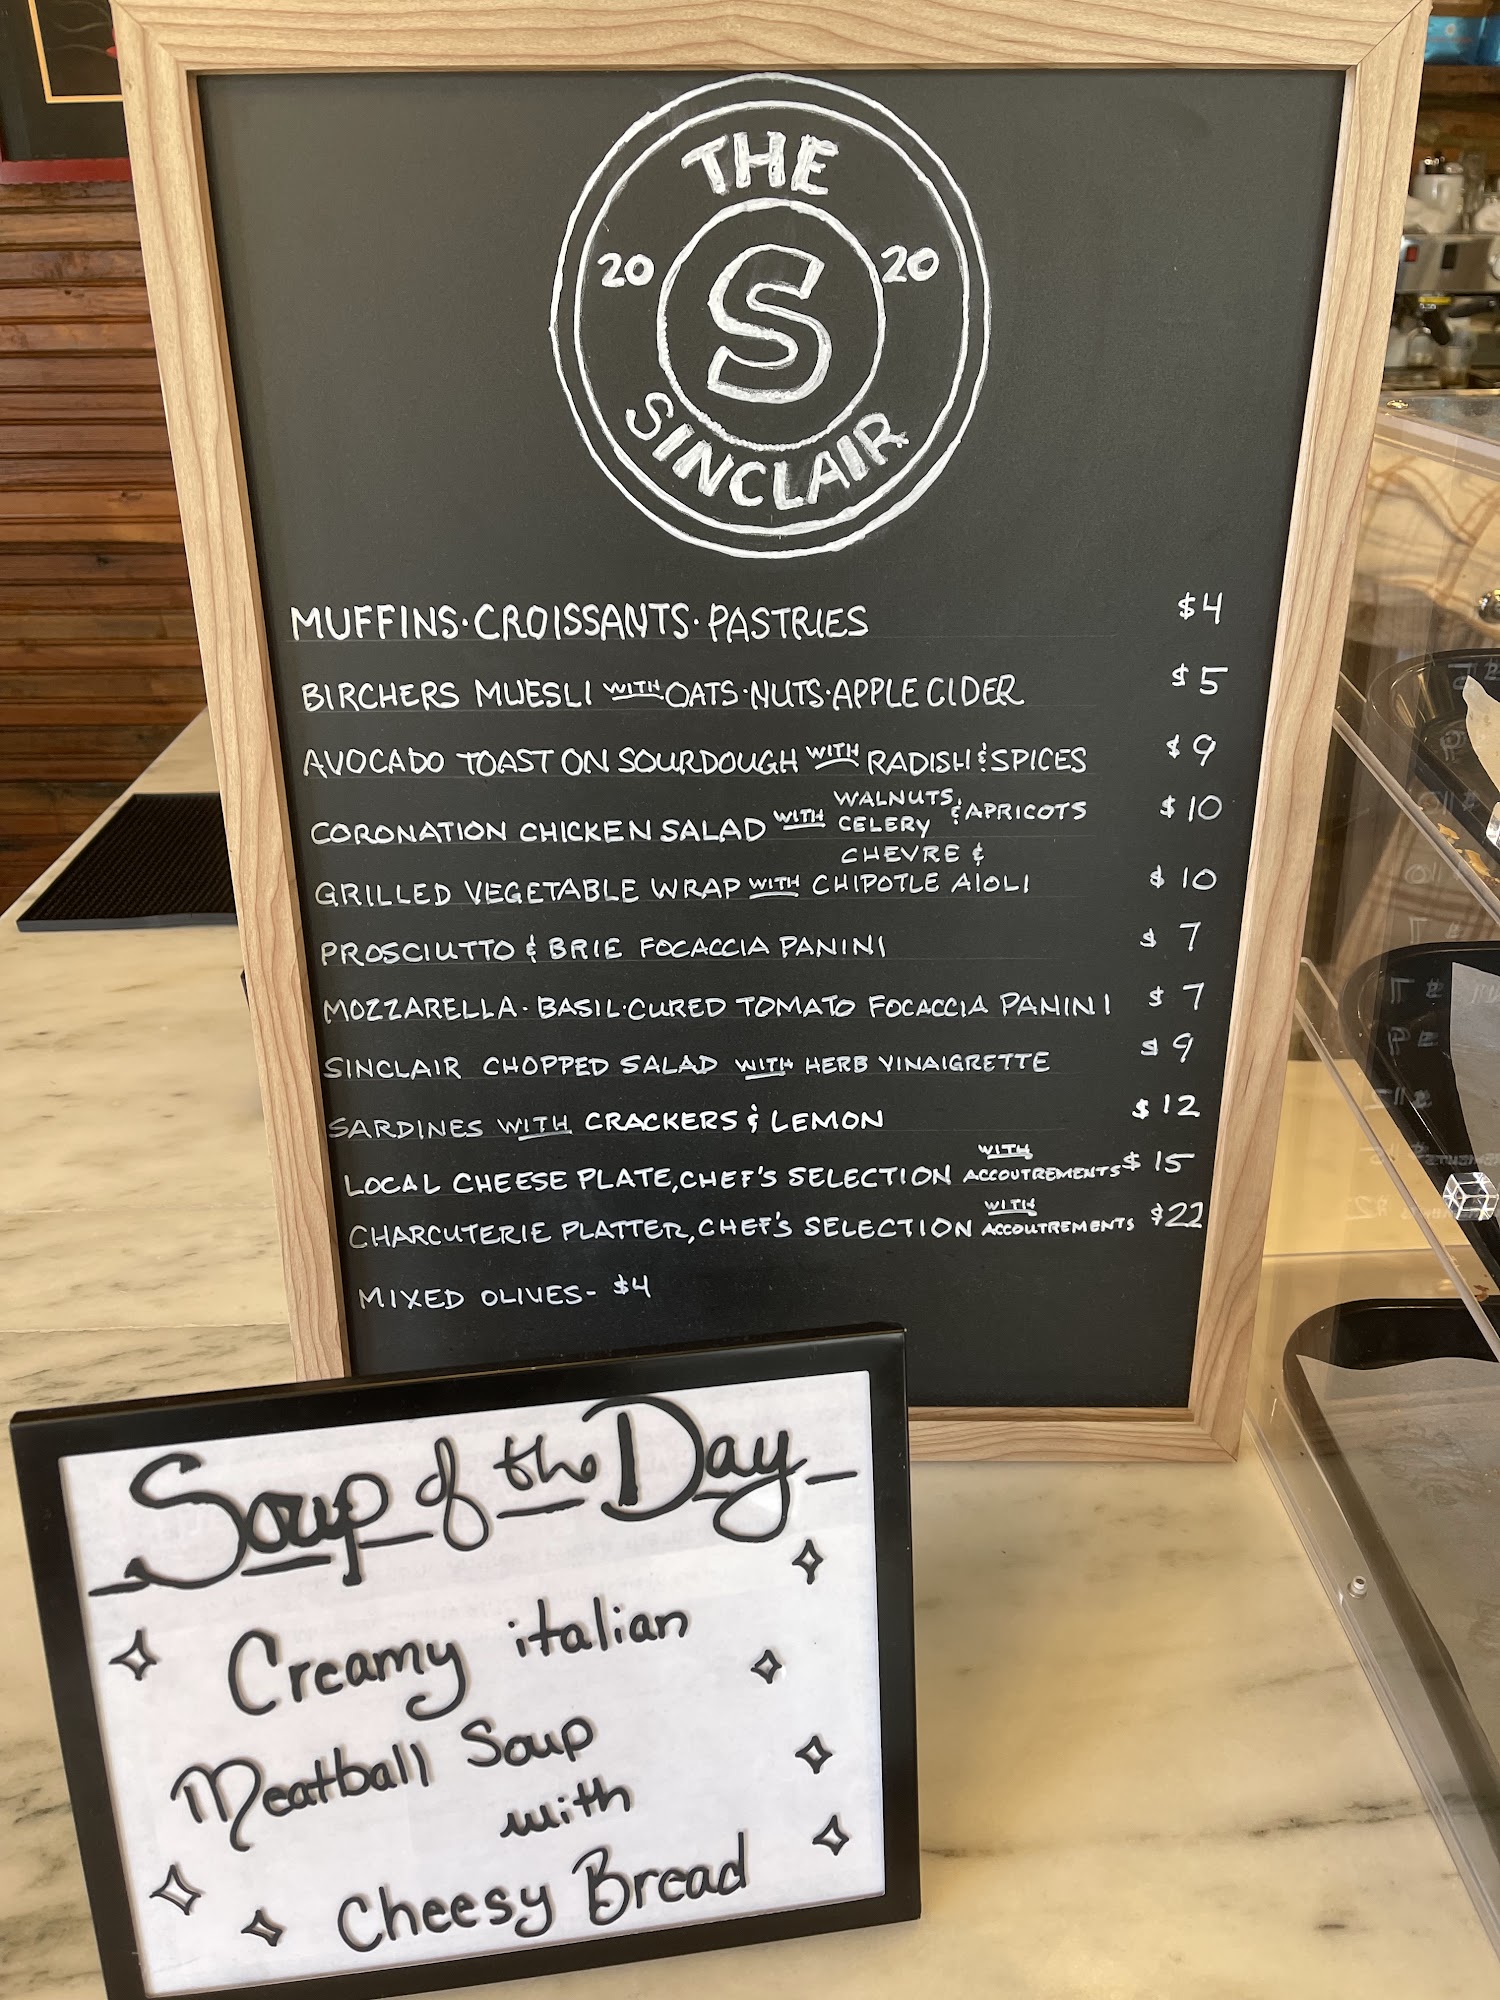 THE
20 S 20
SINCLAIR
MUFFINS · CROISSANTS · PASTRIES $4
BIRCHERS MUESLI WITH OATS · NUTS · APPLE CIDER $5
AVOCADO TOAST ON SOURDOUGH WITH RADISH & SPICES $9
CORONATION CHICKEN SALAD WITH WALNUTS, CELERY & APRICOTS $10
GRILLED VEGETABLE WRAP WITH CHEVRE & CHIPOTLE AIOLI $10
PROSCIUTTO & BRIE FOCACCIA PANINI $7
MOZZARELLA · BASIL · CURED TOMATO FOCACCIA PANINI $7
SINCLAIR CHOPPED SALAD WITH HERB VINAIGRETTE $9
SARDINES WITH CRACKERS & LEMON $12
LOCAL CHEESE PLATE, CHEF'S SELECTION WITH ACCOUTREMENTS $15
CHARCUTERIE PLATTER, CHEF'S SELECTION WITH ACCOUTREMENTS $22
MIXED OLIVES - $4
Soup of the Day
Creamy italian
Meatball Soup
with
Cheesy Bread